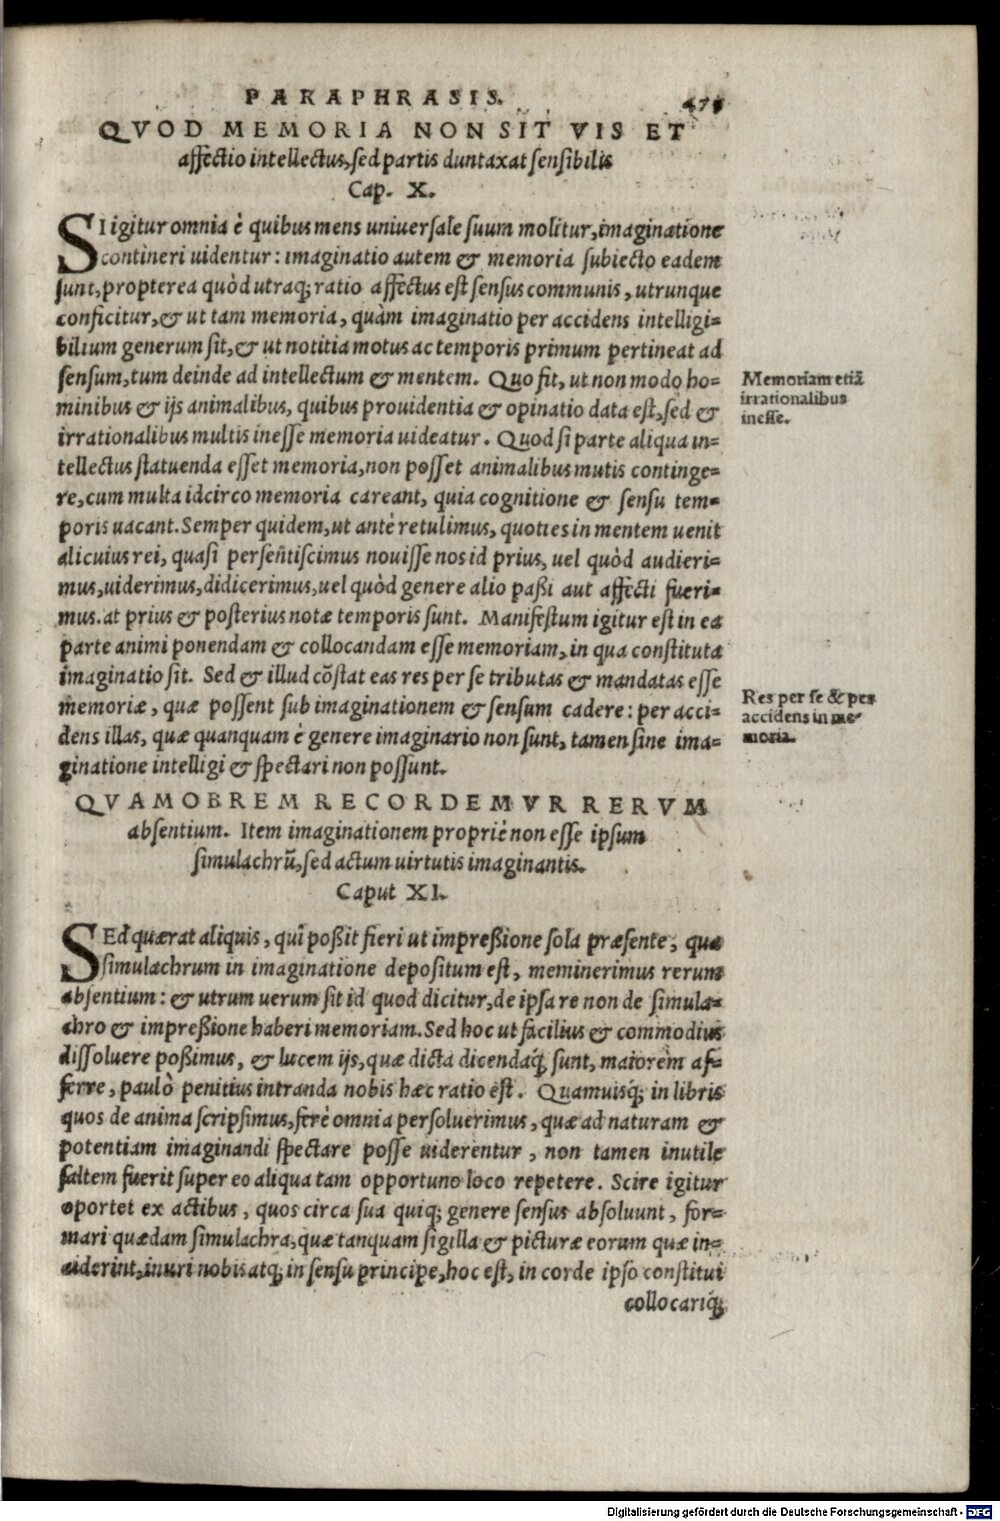 PARAPHRASIS. 471
QVOD MEMORIA NON SIT VIS ET
affectio intellectus, sed partis duntaxat sensibilis
Cap. X.
SI igitur omnia è quibus mens uniuersale suum molitur, imaginatione
contineri uidentur: imaginatio autem & memoria subiecto eadem
sunt, propterea quòd utraq; ratio affectus est sensus communis, utrunque
conficitur, & ut tam memoria, quàm imaginatio per accidens intelligi=
bilium generum sit, & ut notitia motus ac temporis primum pertineat ad
sensum, tum deinde ad intellectum & mentem. Quo fit, ut non modo ho=
minibus & ijs animalibus, quibus prouidentia & opinatio data est, sed &
irrationalibus multis inesse memoria uideatur. Quod si parte aliqua in=
tellectus statuenda esset memoria, non posset animalibus mutis continge=
re, cum multa idcirco memoria careant, quia cognitione & sensu tem=
poris uacant. Semper quidem, ut antè retulimus, quoties in mentem uenit
alicuius rei, quasi persentiscimus nouisse nos id prius, uel quòd audieri=
mus, uiderimus, didicerimus, uel quòd genere alio paßi aut affecti fueri=
mus. at prius & posterius notæ temporis sunt. Manifestum igitur est in ea
parte animi ponendam & collocandam esse memoriam, in qua constituta
imaginatio sit. Sed & illud cõstat eas res per se tributas & mandatas esse
memoriæ, quæ possent sub imaginationem & sensum cadere: per acci=
dens illas, quæ quanquam è genere imaginario non sunt, tamen sine ima=
ginatione intelligi & spectari non possunt.
Memoriam etiã
irrationalibus
inesse.
Res per se & per
accidens in me-
moria.
QVAMOBREM RECORDEMVR RERVM
absentium. Item imaginationem propriè non esse ipsum
simulachrũ, sed actum uirtutis imaginantis.
Caput XI.
SEd quærat aliquis, quî poßit fieri ut impreßione sola præsente, quæ
simulachrum in imaginatione depositum est, meminerimus rerum
absentium: & utrum uerum sit id quod dicitur, de ipsa re non de simula=
chro & impreßione haberi memoriam. Sed hoc ut facilius & commodius
dissoluere poßimus, & lucem ijs, quæ dicta dicendaq́; sunt, maiorem af=
ferre, paulò penitius intranda nobis hæc ratio est. Quamuisq́; in libris
quos de anima scripsimus, ferè omnia persoluerimus, quæ ad naturam &
potentiam imaginandi spectare posse uiderentur, non tamen inutile
saltem fuerit super eo aliqua tam opportuno loco repetere. Scire igitur
oportet ex actibus, quos circa sua quiq; genere sensus absoluunt, for=
mari quædam simulachra, quæ tanquam sigilla & picturæ eorum quæ in=
uiderint, inuri nobis atq; in sensu principe, hoc est, in corde ipso constitui
collocariq́;
Digitalisierung gefördert durch die Deutsche Forschungsgemeinschaft - DFG